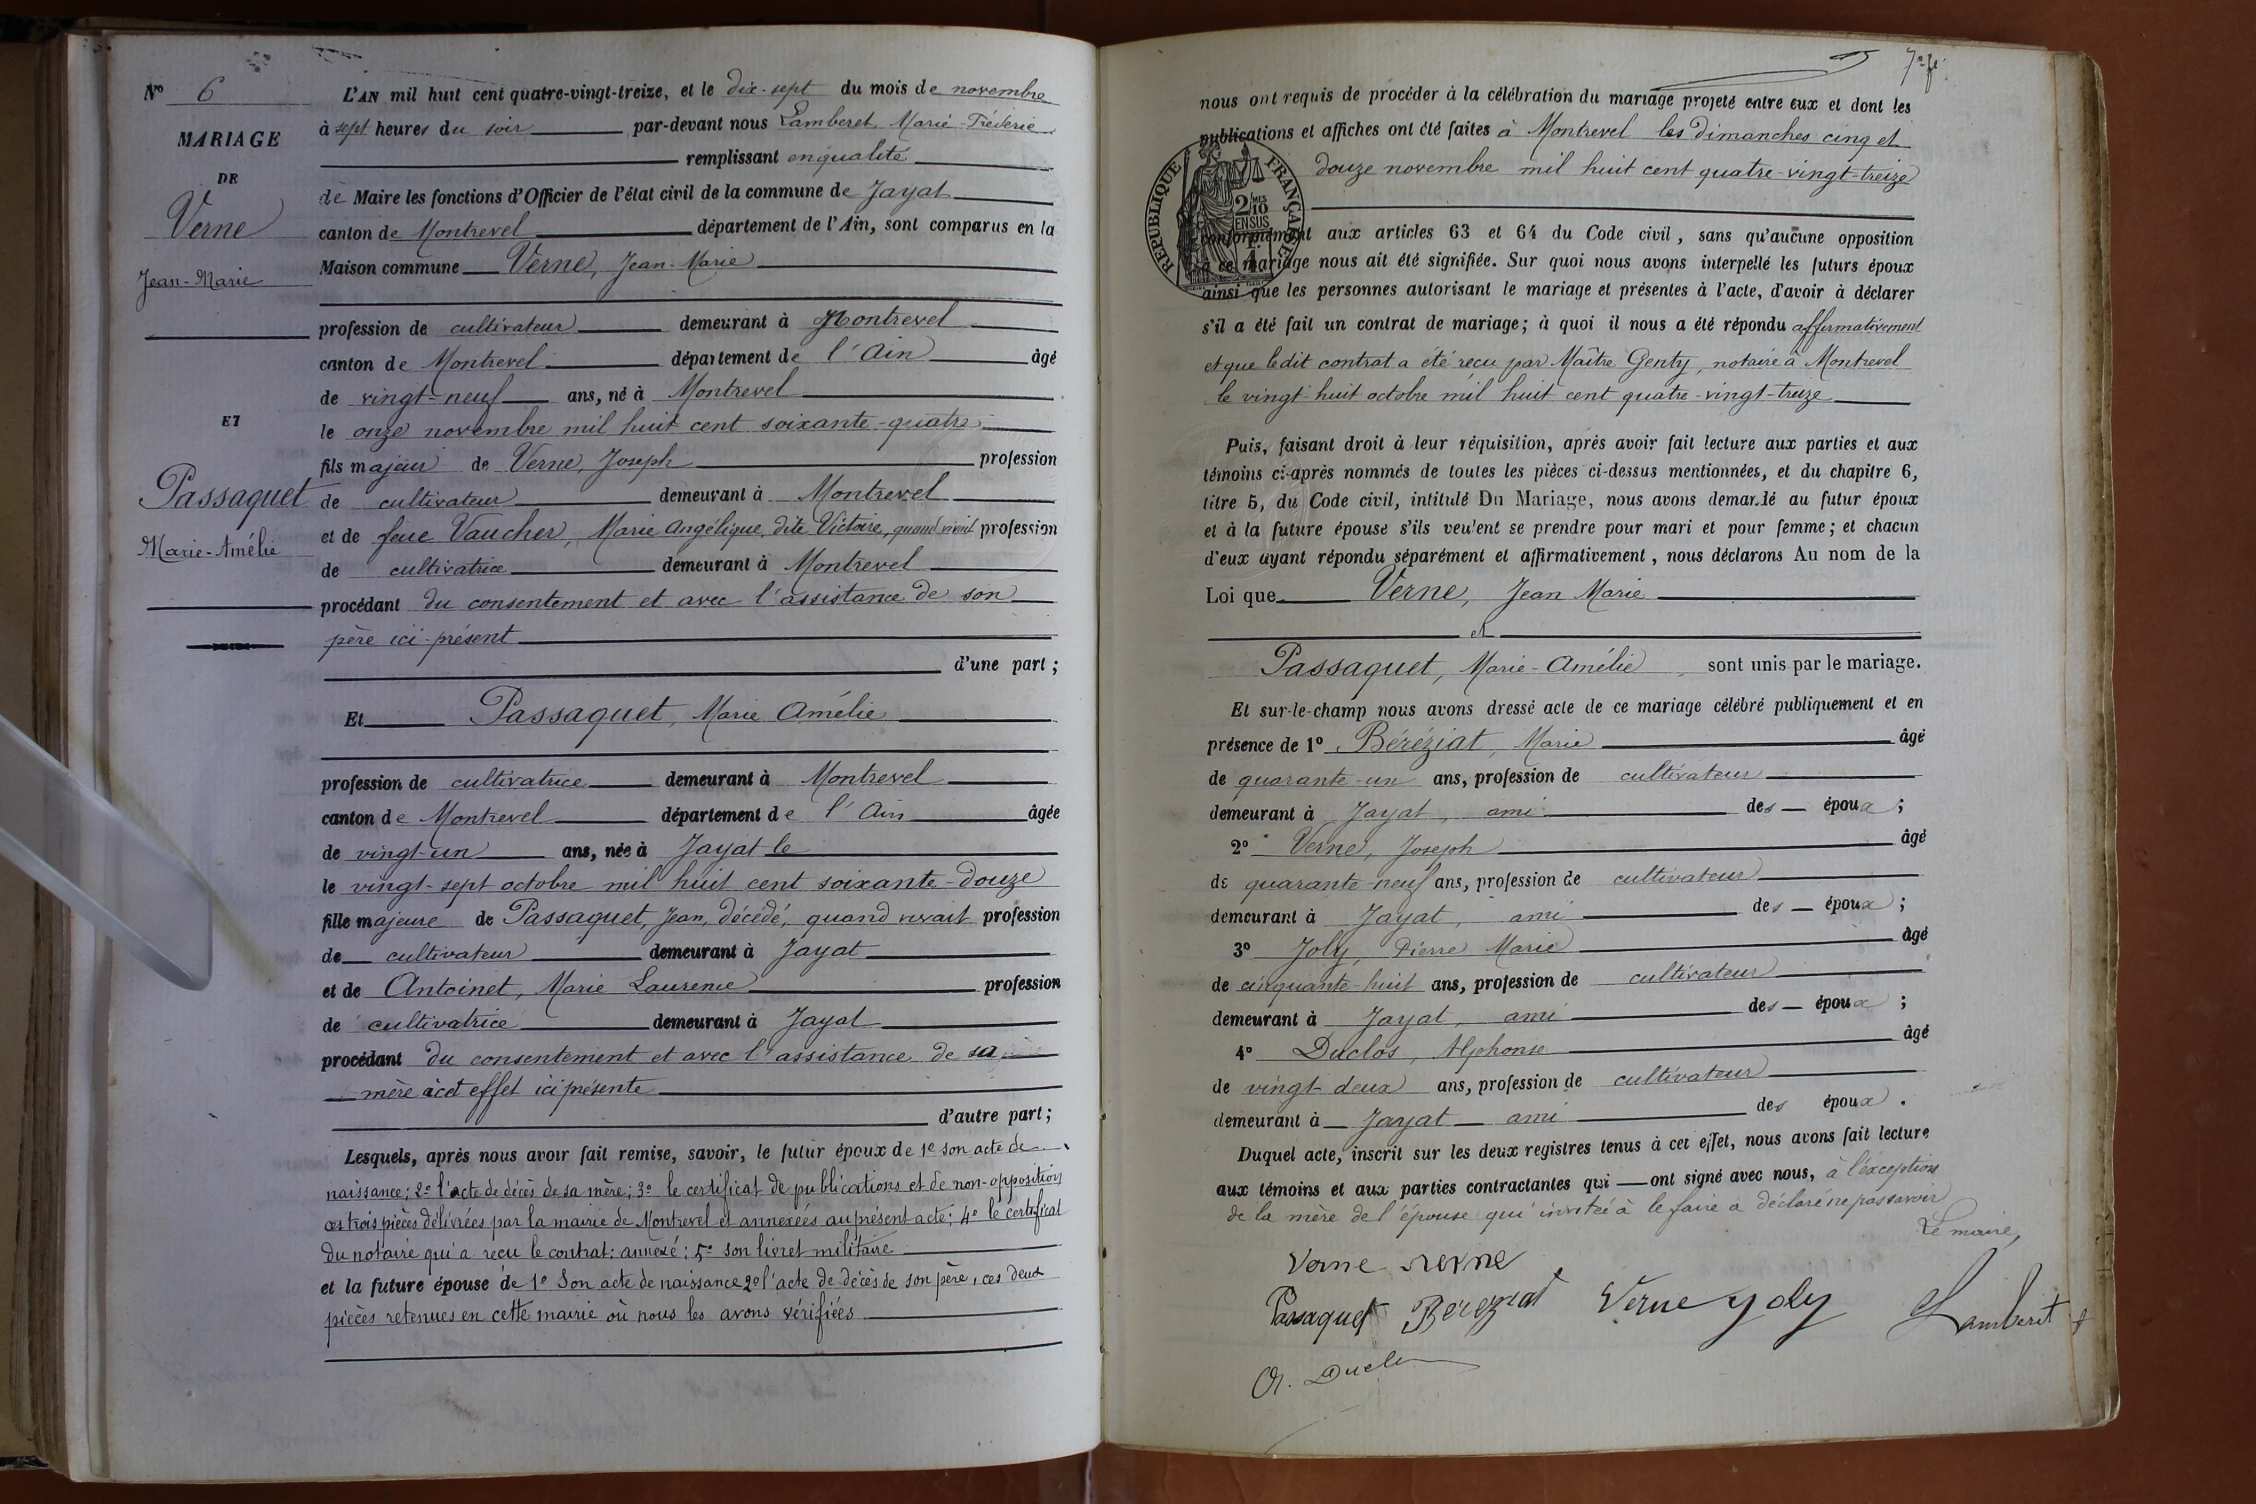 N° 6
MARIAGE
DE
Verne
Jean-Marie
ET
Passaquet
Marie-Amélie
L'AN mil huit cent quatre-vingt-treize, et le dix-sept du mois de novembre
à sept heures du soir par-devant nous Lamberet Marie-Fréderic
remplissant en qualité
de Maire les fonctions d'Officier de l'état civil de la commune de Jayat
canton de Montrevel département de l'Ain, sont comparus en la
Maison commune Verne, Jean-Marie
profession de cultivateur demeurant à Montrevel
canton de Montrevel département de l'Ain âgé
de vingt-neuf ans, né à Montrevel
le onze novembre mil huit cent soixante-quatre
fils majeur de Verne, Joseph profession
de cultivateur demeurant à Montrevel
et de feue Vaucher, Marie Angélique, dite Victoire, quand vivait profession
de cultivatrice demeurant à Montrevel
procédant du consentement et avec l'assistance de son
père ici-présent
d'une part ;
Et Passaquet, Marie Amélie
profession de cultivatrice demeurant à Montrevel
canton de Montrevel département de l'Ain âgée
de vingt-un ans, née à Jayat le
le vingt-sept octobre mil huit cent soixante-douze
fille majeure de Passaquet, Jean, décédé, quand vivait profession
de cultivateur demeurant à Jayat
et de Antoinet, Marie Laurence profession
de cultivatrice demeurant à Jayat
procédant du consentement et avec l'assistance de sa
mère à cet effet ici présente
d'autre part ;
Lesquels, après nous avoir fait remise, savoir, le futur époux de 1° son acte de
naissance ; 2° l'acte de décès de sa mère ; 3° le certificat de publications et de non-opposition
ces trois pièces délivrées par la mairie de Montrevel et annexées au présent acte ; 4° le certificat
du notaire qui a reçu le contrat : annexé ; 5° son livret militaire
et la future épouse de 1° Son acte de naissance 2° l'acte de décès de son père, ces deux
pièces retenues en cette mairie où nous les avons vérifiées
7e fe
nous ont requis de procéder à la célébration du mariage projeté entre eux et dont les
publications et affiches ont été faites à Montrevel les dimanches cinq et
douze novembre mil huit cent quatre-vingt-treize
REPUBLIQUE FRANÇAISE
2/10
EN SUS
conformément aux articles 63 et 64 du Code civil, sans qu'aucune opposition
à ce mariage nous ait été signifiée. Sur quoi nous avons interpellé les futurs époux
ainsi que les personnes autorisant le mariage et présentes à l'acte, d'avoir à déclarer
s'il a été fait un contrat de mariage ; à quoi il nous a été répondu affirmativement
et que ledit contrat a été reçu par Maître Genty, notaire à Montrevel
le vingt-huit octobre mil huit cent quatre-vingt-treize
Puis, faisant droit à leur réquisition, après avoir fait lecture aux parties et aux
témoins ci-après nommés de toutes les pièces ci-dessus mentionnées, et du chapitre 6,
titre 5, du Code civil, intitulé Du Mariage, nous avons demandé au futur époux
et à la future épouse s'ils veulent se prendre pour mari et pour femme ; et chacun
d'eux ayant répondu séparément et affirmativement, nous déclarons Au nom de la
Loi que Verne, Jean Marie
et
Passaquet, Marie-Amélie, sont unis par le mariage.
Et sur-le-champ nous avons dressé acte de ce mariage célébré publiquement et en
présence de 1° Béréziat, Marie âgé
de quarante-un ans, profession de cultivateur
demeurant à Jayat, ami des époux ;
2° Verne, Joseph âgé
de quarante-neuf ans, profession de cultivateur
demeurant à Jayat, ami des époux ;
3° Joly, Pierre Marie âgé
de cinquante-huit ans, profession de cultivateur
demeurant à Jayat, ami des époux ;
4° Duclos, Alphonse âgé
de vingt deux ans, profession de cultivateur
demeurant à Jayat ami des époux.
Duquel acte, inscrit sur les deux registres tenus à cet effet, nous avons fait lecture
aux témoins et aux parties contractantes qui ont signé avec nous, à l'exception
de la mère de l'épouse qui invitée à le faire a déclaré ne pas savoir
Le maire,
Verne verne
Passaquet Béréziat Verne Joly Lamberet
A. Duclos